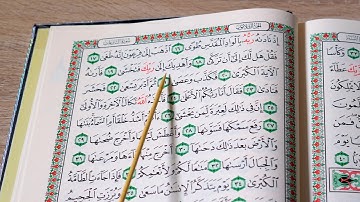 إِذْ نَادَىٰهُ رَبُّهُۥ بِٱلْوَادِ ٱلْمُقَدَّسِ طُوًى ١٦ ٱذْهَبْ إِلَىٰ فِرْعَوْنَ إِنَّهُۥ طَغَىٰ ١٧
فَقُلْ هَل لَّكَ إِلَىٰٓ أَن تَزَكَّىٰ ١٨ وَأَهْدِيَكَ إِلَىٰ رَبِّكَ فَتَخْشَىٰ ١٩ فَأَرَىٰهُ
ٱلْـَٔايَةَ ٱلْكُبْرَىٰ ٢٠ فَكَذَّبَ وَعَصَىٰ ٢١ ثُمَّ أَدْبَرَ يَسْعَىٰ ٢٢ فَحَشَرَ
فَنَادَىٰ ٢٣ فَقَالَ أَنَا۠ رَبُّكُمُ ٱلْأَعْلَىٰ ٢٤ فَأَخَذَهُ ٱللَّهُ نَكَالَ ٱلْـَٔاخِرَةِ وَٱلْأُولَىٰٓ ٢٥
إِنَّ فِى ذَٰلِكَ لَعِبْرَةً لِّمَن يَخْشَىٰٓ ٢٦ ءَأَنتُمْ أَشَدُّ خَلْقًا أَمِ ٱلسَّمَآءُ بَنَىٰهَا ٢٧
رَفَعَ سَمْكَهَا فَسَوَّىٰهَا ٢٨ وَأَغْطَشَ لَيْلَهَا وَأَخْرَجَ ضُحَىٰهَا ٢٩
وَٱلْأَرْضَ بَعْدَ ذَٰلِكَ دَحَىٰهَآ ٣٠ أَخْرَجَ مِنْهَا مَآءَهَا وَمَرْعَىٰهَا ٣١
وَٱلْجِبَالَ أَرْسَىٰهَا ٣٢ مَتَٰعًا لَّكُمْ وَلِأَنْعَٰمِكُمْ ٣٣ فَإِذَا جَآءَتِ ٱلطَّآمَّةُ
ٱلْكُبْرَىٰ ٣٤ يَوْمَ يَتَذَكَّرُ ٱلْإِنسَٰنُ مَا سَعَىٰ ٣٥ وَبُرِّزَتِ ٱلْجَحِيمُ